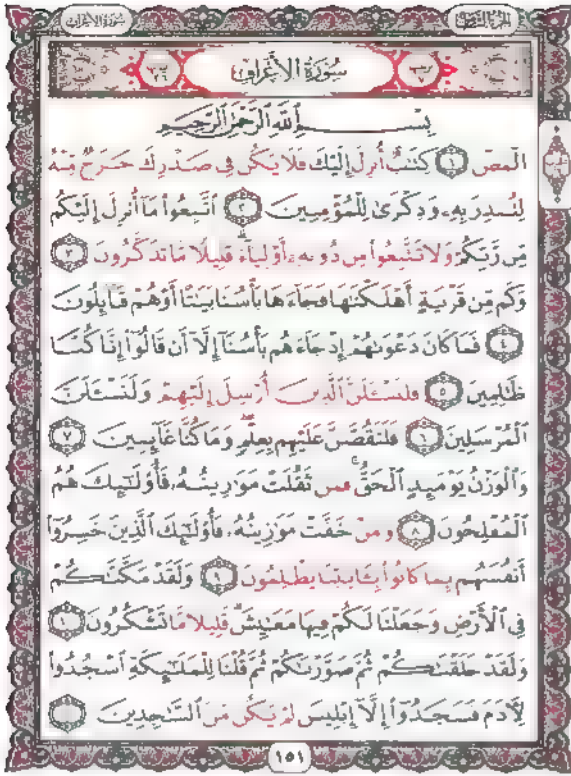 سُورَةُ الأَعْرَافِ
سُورَةُ الْأَعْرَافِ
بِسْمِ اللَّهِ الرَّحْمَٰنِ الرَّحِيمِ
الٓمٓصٓ ١ كِتَٰبٌ أُنزِلَ إِلَيْكَ فَلَا يَكُن فِى صَدْرِكَ حَرَجٌ مِّنْهُ
لِتُنذِرَ بِهِۦ وَذِكْرَىٰ لِلْمُؤْمِنِينَ ٢ ٱتَّبِعُوا۟ مَآ أُنزِلَ إِلَيْكُم
مِّن رَّبِّكُمْ وَلَا تَتَّبِعُوا۟ مِن دُونِهِۦٓ أَوْلِيَآءَ قَلِيلًا مَّا تَذَكَّرُونَ ٣
وَكَم مِّن قَرْيَةٍ أَهْلَكْنَٰهَا فَجَآءَهَا بَأْسُنَا بَيَٰتًا أَوْ هُمْ قَآئِلُونَ
٤ فَمَا كَانَ دَعْوَىٰهُمْ إِذْ جَآءَهُم بَأْسُنَآ إِلَّآ أَن قَالُوٓا۟ إِنَّا كُنَّا
ظَٰلِمِينَ ٥ فَلَنَسْـَٔلَنَّ ٱلَّذِينَ أُرْسِلَ إِلَيْهِمْ وَلَنَسْـَٔلَنَّ
ٱلْمُرْسَلِينَ ٦ فَلَنَقُصَّنَّ عَلَيْهِم بِعِلْمٍ وَمَا كُنَّا غَآئِبِينَ ٧
وَٱلْوَزْنُ يَوْمَئِذٍ ٱلْحَقُّ ۚ فَمَن ثَقُلَتْ مَوَٰزِينُهُۥ فَأُو۟لَٰٓئِكَ هُمُ
ٱلْمُفْلِحُونَ ٨ وَمَنْ خَفَّتْ مَوَٰزِينُهُۥ فَأُو۟لَٰٓئِكَ ٱلَّذِينَ خَسِرُوٓا۟
أَنفُسَهُم بِمَا كَانُوا۟ بِـَٔايَٰتِنَا يَظْلِمُونَ ٩ وَلَقَدْ مَكَّنَّٰكُمْ
فِى ٱلْأَرْضِ وَجَعَلْنَا لَكُمْ فِيهَا مَعَٰيِشَ ۗ قَلِيلًا مَّا تَشْكُرُونَ ١٠
وَلَقَدْ خَلَقْنَٰكُمْ ثُمَّ صَوَّرْنَٰكُمْ ثُمَّ قُلْنَا لِلْمَلَٰٓئِكَةِ ٱسْجُدُوا۟
لِـَٔادَمَ فَسَجَدُوٓا۟ إِلَّآ إِبْلِيسَ لَمْ يَكُن مِّنَ ٱلسَّٰجِدِينَ
١٥١